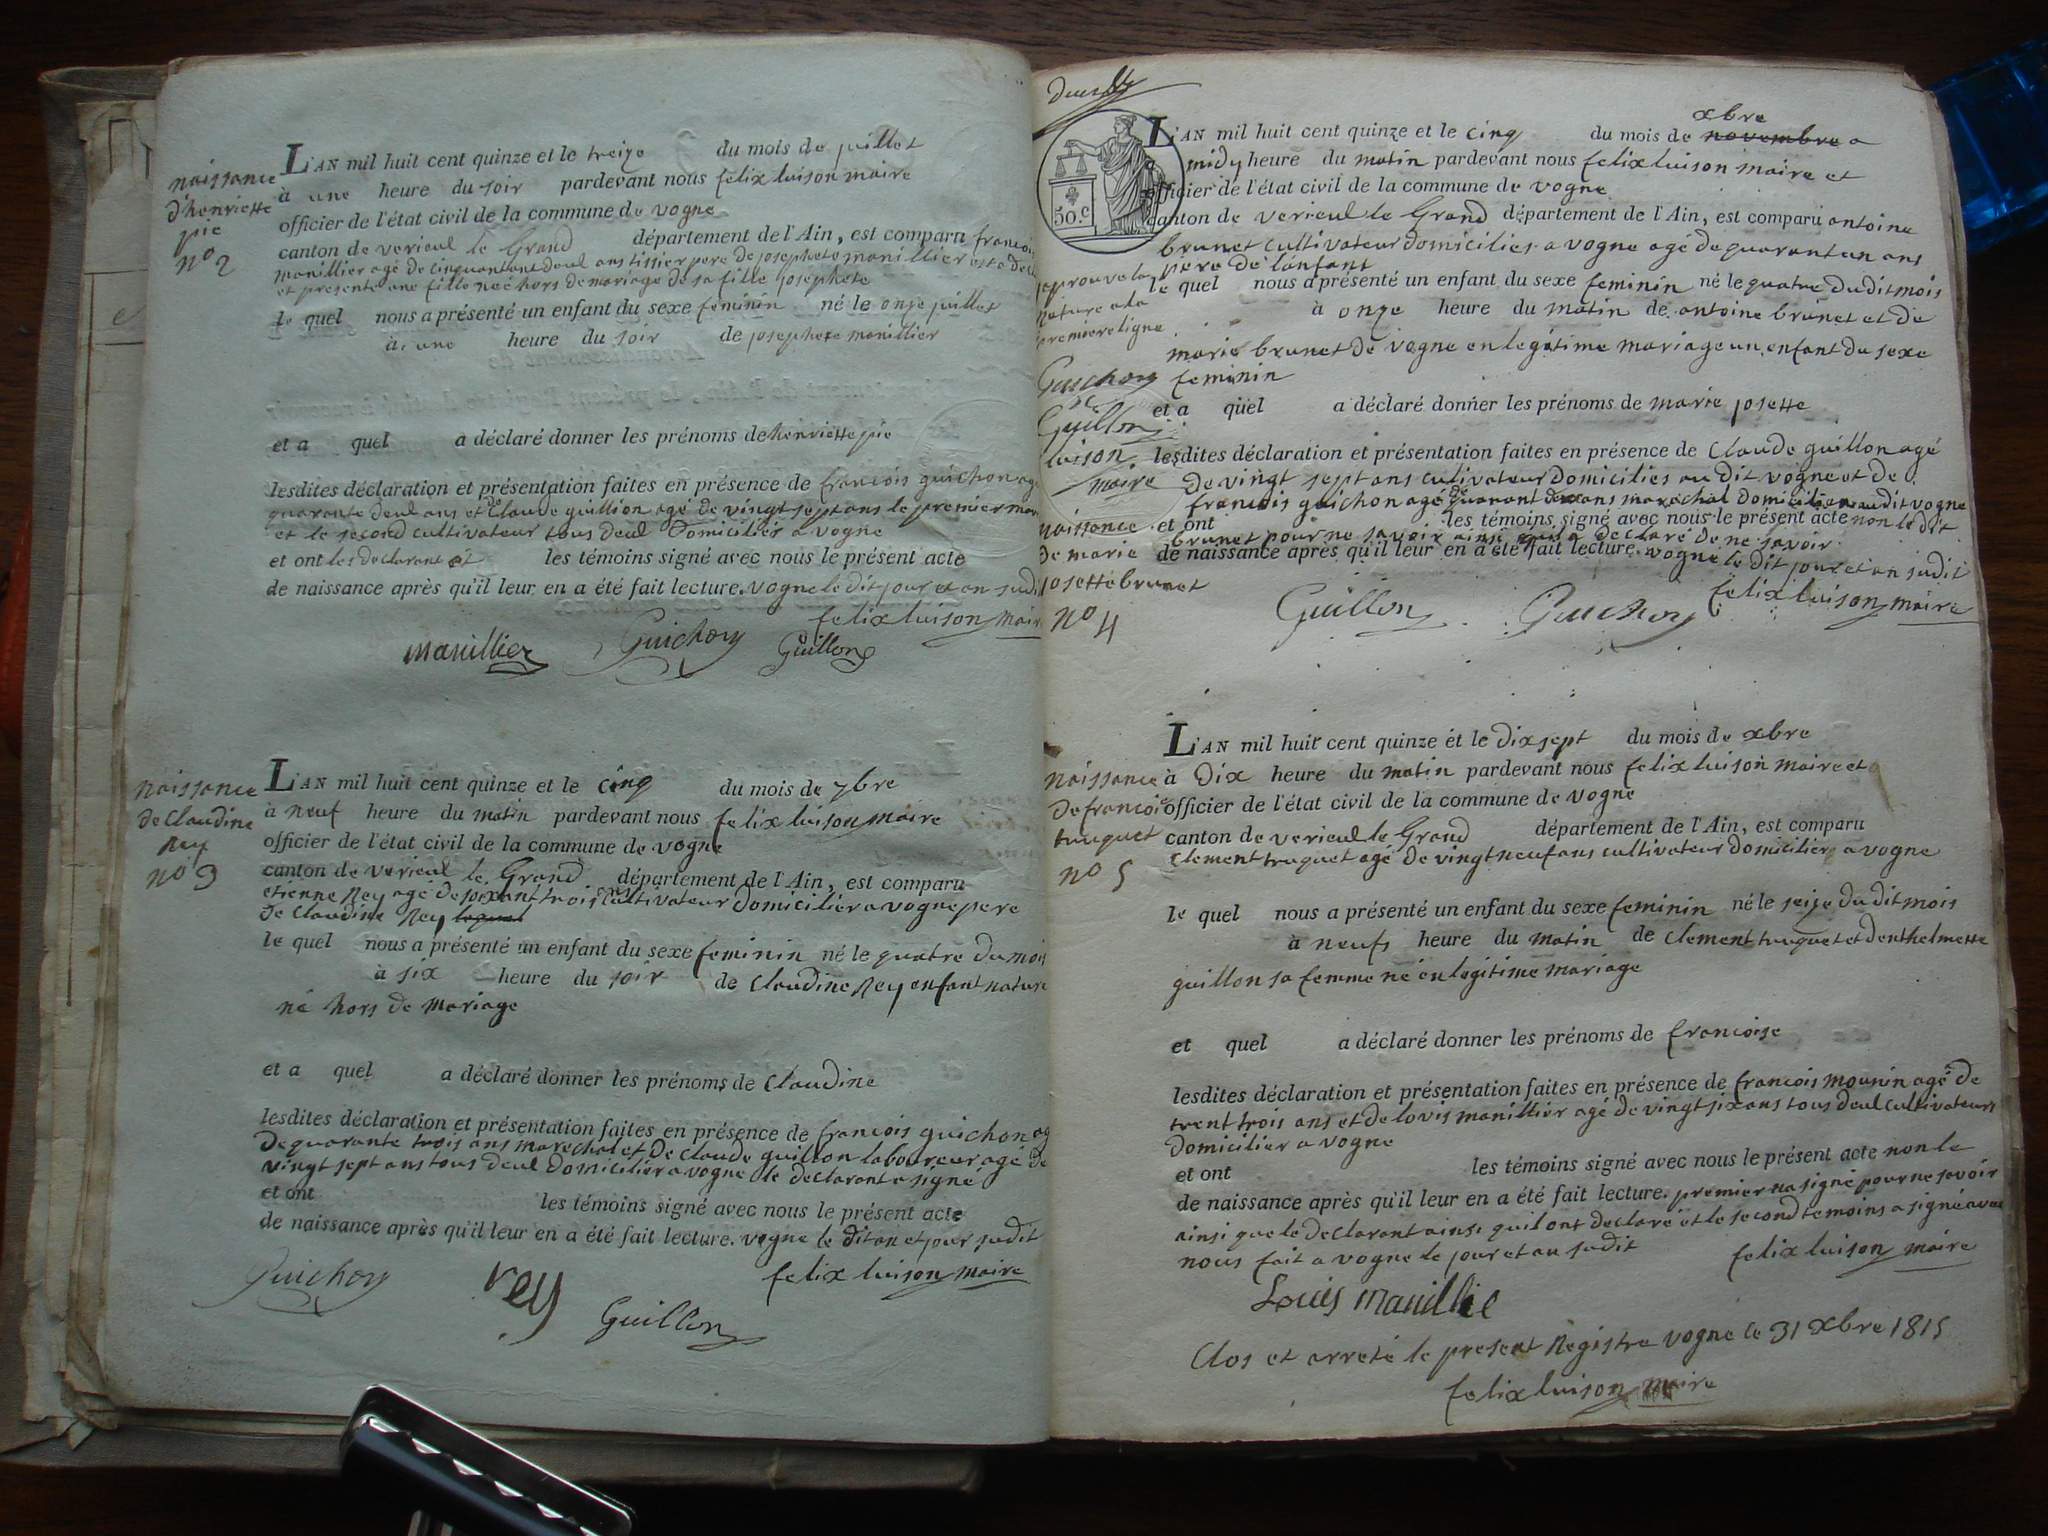 naissance
d'henriette
pie
no 2
L'AN mil huit cent quinze et le treize du mois de juillet
à une heure du soir pardevant nous felix luison maire
officier de l'état civil de la commune de vogne
canton de verieul le Grand département de l'Ain, est comparu francois
manillier agé de cinquantant deul ans tissier pere de josephete manillier
et presente une fille neé hors de mariage de sa fille josephete
le quel nous a présenté un enfant du sexe feminin né le onze juillet
à une heure du soir de josephete manillier
et a quel a déclaré donner les prénoms de henriette pie
lesdites déclaration et présentation faites en présence de francois guichon agé
quarante deul ans et de Claude guillion agé de vingt sept ans le premier mar
et le second cultivateur tous deul Domicilier a vogne
et ont les declarant et les témoins signé avec nous le présent acte
de naissance après qu'il leur en a été fait lecture. vogne le dit jour et an sudi
felix luison maire
manillier Guichon Guillon
naissance
de Claudine
Rey
no 3
L'AN mil huit cent quinze et le cinq du mois de 7bre
à neuf heure du matin pardevant nous felix luison maire
officier de l'état civil de la commune de vogne
canton de verieul le Grand département de l'Ain, est comparu
etienne Rey agé de soixant trois ans cultivateur domicilier a vogne pere
de Claudine Rey lequel
le quel nous a présenté un enfant du sexe feminin né le quatre du mois
à six heure du soir de Claudine Rey enfant nature
né hors de mariage
et a quel a déclaré donner les prénoms de Claudine
lesdites déclaration et présentation faites en présence de francois guichon ag
de quarante trois ans marechal et de Claude guillon laboureur agé de
vingt sept ans tous deul domicilier a vogne le declarant a signé
et ont les témoins signé avec nous le présent acte
de naissance après qu'il leur en a été fait lecture. vogne le dit an et jour sudit
Guichon rey Guillon felix luison maire
50.c
L'AN mil huit cent quinze et le cinq du mois de novembre xbre a
midy heure du matin pardevant nous felix luison maire et
officier de l'état civil de la commune de vogne
canton de verieul le Grand département de l'Ain, est comparu antoine
brunet cultivateur domicilies a vogne agé de quarant un ans
père de l'anfant
le quel nous a présenté un enfant du sexe feminin né le quatre du dit mois
à onze heure du matin de antoine brunet et de
marie brunet de vogne en legitime mariage un enfant du sexe
feminin
et a quel a déclaré donner les prénoms de marie josette
lesdites déclaration et présentation faites en présence de Claude guillon agé
de vingt sept ans cultivateur domicilies au dit vogne et de
francois guichon agé de quarant deux ans marechal domicilier au dit vogne
et ont les témoins signé avec nous le présent acte non le dit
brunet pour ne savoir ainsi quil a declaré de ne savoir
de naissance après qu'il leur en a été fait lecture. vogne le dit jour et an sudit
Guillon Guichon felix luison maire
aprouve la
premiere ligne
Guichon
Guillon
luison
maire
naissance
de marie
josette brunet
no 4
L'AN mil huit cent quinze et le dix sept du mois de xbre
à dix heure du matin pardevant nous felix luison maire et
officier de l'état civil de la commune de vogne
canton de verieul le Grand département de l'Ain, est comparu
Clement truquet agé de vingt neuf ans cultivateur domicilier a vogne
le quel nous a présenté un enfant du sexe feminin né le seize du dit mois
à neufs heure du matin de Clement truquet et denthelmette
guillon sa femme né en legitime mariage
et quel a déclaré donner les prénoms de francoise
lesdites déclaration et présentation faites en présence de francois mounin agé de
trent trois ans et de lovis manillier agé de vingt six ans tous deul cultivateurs
domicilier a vogne
et ont les témoins signé avec nous le présent acte non le
de naissance après qu'il leur en a été fait lecture. premier na signé pour ne savoir
ainsi que le declarant ainsi quil ont declaré et le second temoins a signé avec
nous fait a vogne le jour et an sudit felix luison maire
Louis manillie
naissance
de francoise
truquet
no 5
Clos et arreté le present Registre vogne le 31 xbre 1815
felix luison maire